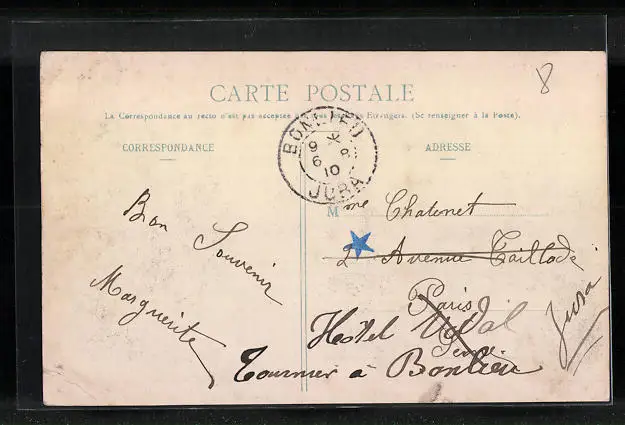 8
CARTE POSTALE
La Correspondance au recto n'est pas acceptée par tous les pays Etrangers. (Se renseigner à la Poste).
CORRESPONDANCE
ADRESSE
BONLIEU
9 *
6 8
10
JURA
Bon Souvenir
Marguerite
Mme Chatenet
2 Avenue Taillade
Paris
Hostel Vidal
Tournier à Bonlieu
Jura